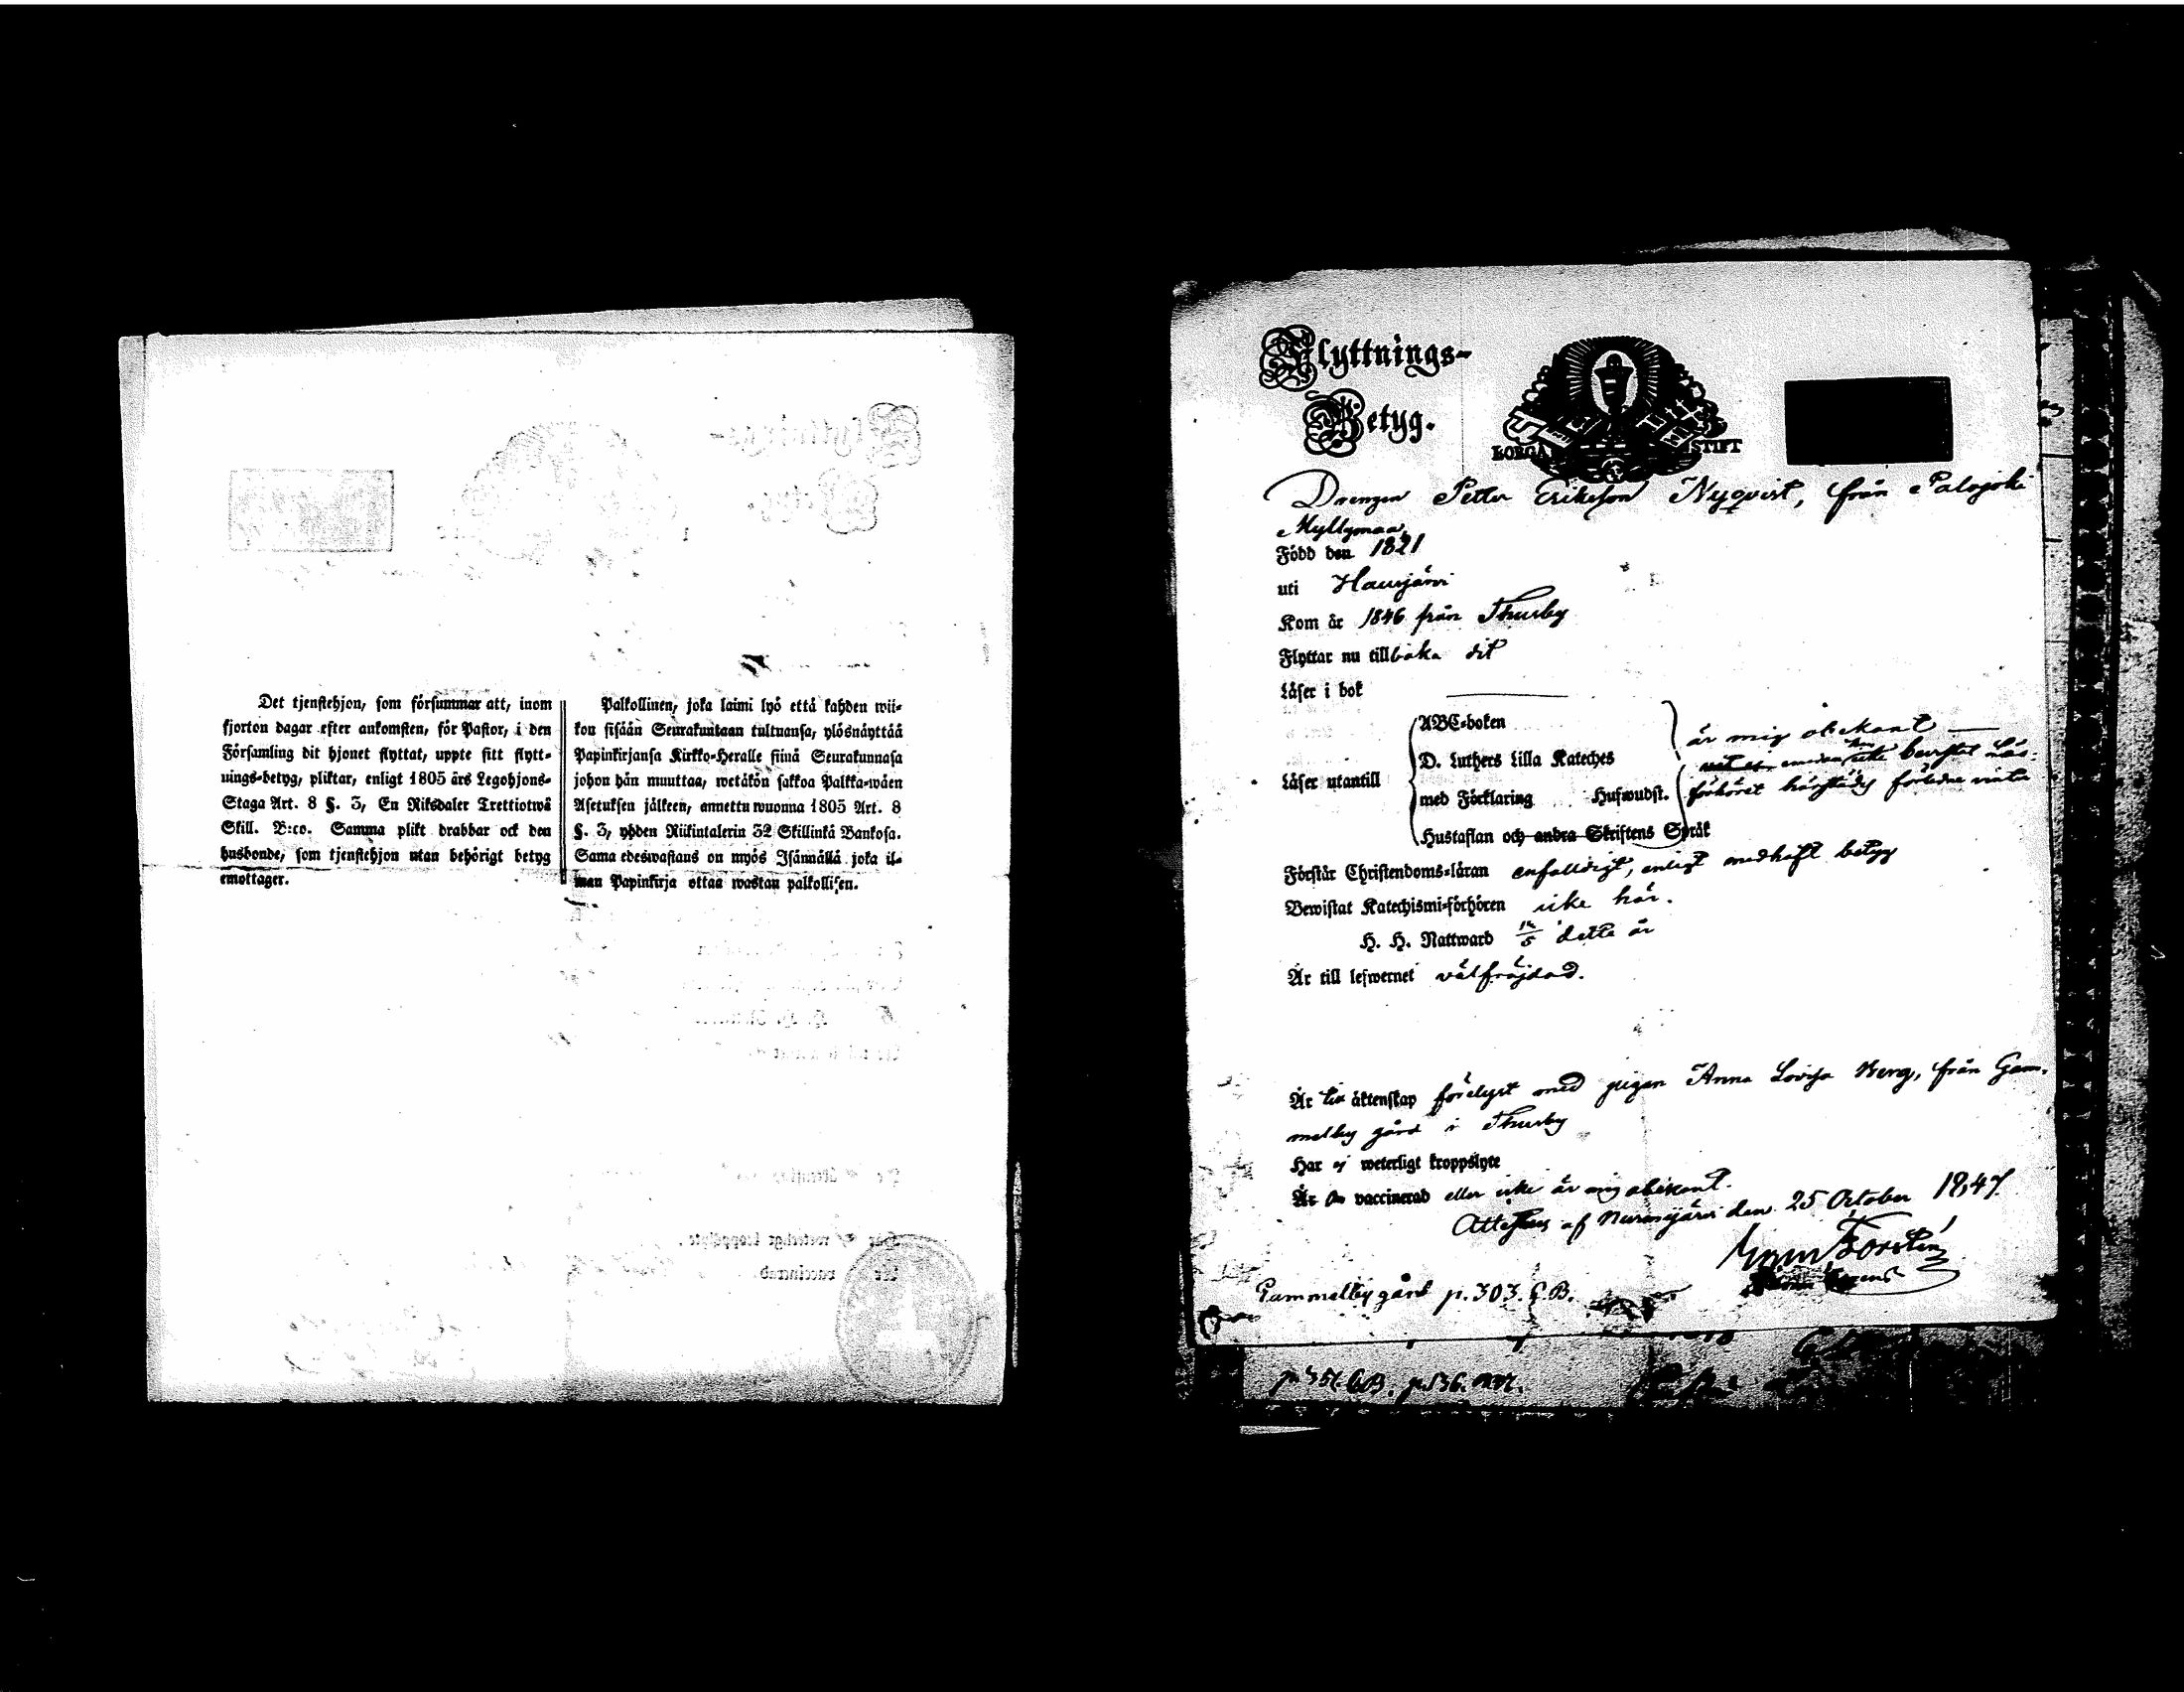 Det tjenstehjon, som försummar att, inom
fjorton dagar efter ankomsten, för Pastor, i den
Församling dit hjonet flyttat, uppte sitt flytt-
nings-betyg, pliktar, enligt 1805 års Legohjons-
Staga Art. 8 §. 3, En Riksdaler Trettiotwå
Skill. B:co. Samma plikt drabbar ock den
husbonde, som tjenstehjon utan behörigt betyg
emottager.
Palkollinen, joka laimi lyö että kahden wii-
kon sisään Seurakuntaan tultuansa, ylösnäyttää
Papinkirjansa Kirkko-Heralle siinä Seurakunnasa
johon hän muuttaa, wetäkön sakkoa Palkka-wäen
Asetuksen jälkeen, annettu wuonna 1805 Art. 8
§. 3, yhden Riikintalerin 32 Skillinkä Bankosa.
Sama edeswastaus on myös Isännällä joka il-
man Papinkirja ottaa wastan palkollisen.
Flyttnings-
Betyg.
BORGÅ STIFT
Drengen Petter Eriksson Nyqvist, från Palojoki
Myllymaa,
Född den 1821
uti Hausjärvi
Kom år 1846 från Thusby
Flyttar nu tillbaka dit
Läser i bok
Läser utantill
ABC-boken
D. Luthers Lilla Kateches
med Förklaring Hufwudst.
Hustaflan och andra Skriftens Språk
är mig obekant
icke bevistat Läs-
förhöret härstädes förledne vinter
Förstår Christendoms-läran enfalldigt, enligt medhaft betyg
Bewistat Katechismi-förhören icke här.
H. H. Nattward dette år
Är till lefwernet välfräjdad.
Är till äktenskap förelyst med pigan Anna Lovisa Berg, från Gam-
melby gård i Thusby
Har ej weterligt kroppslyte
Är vaccinerad eller icke är mig obekant.
Attesteras af Nurmijärvi den 25 October 1847.
Forstén
Gammelby gård p. 303. C.B.